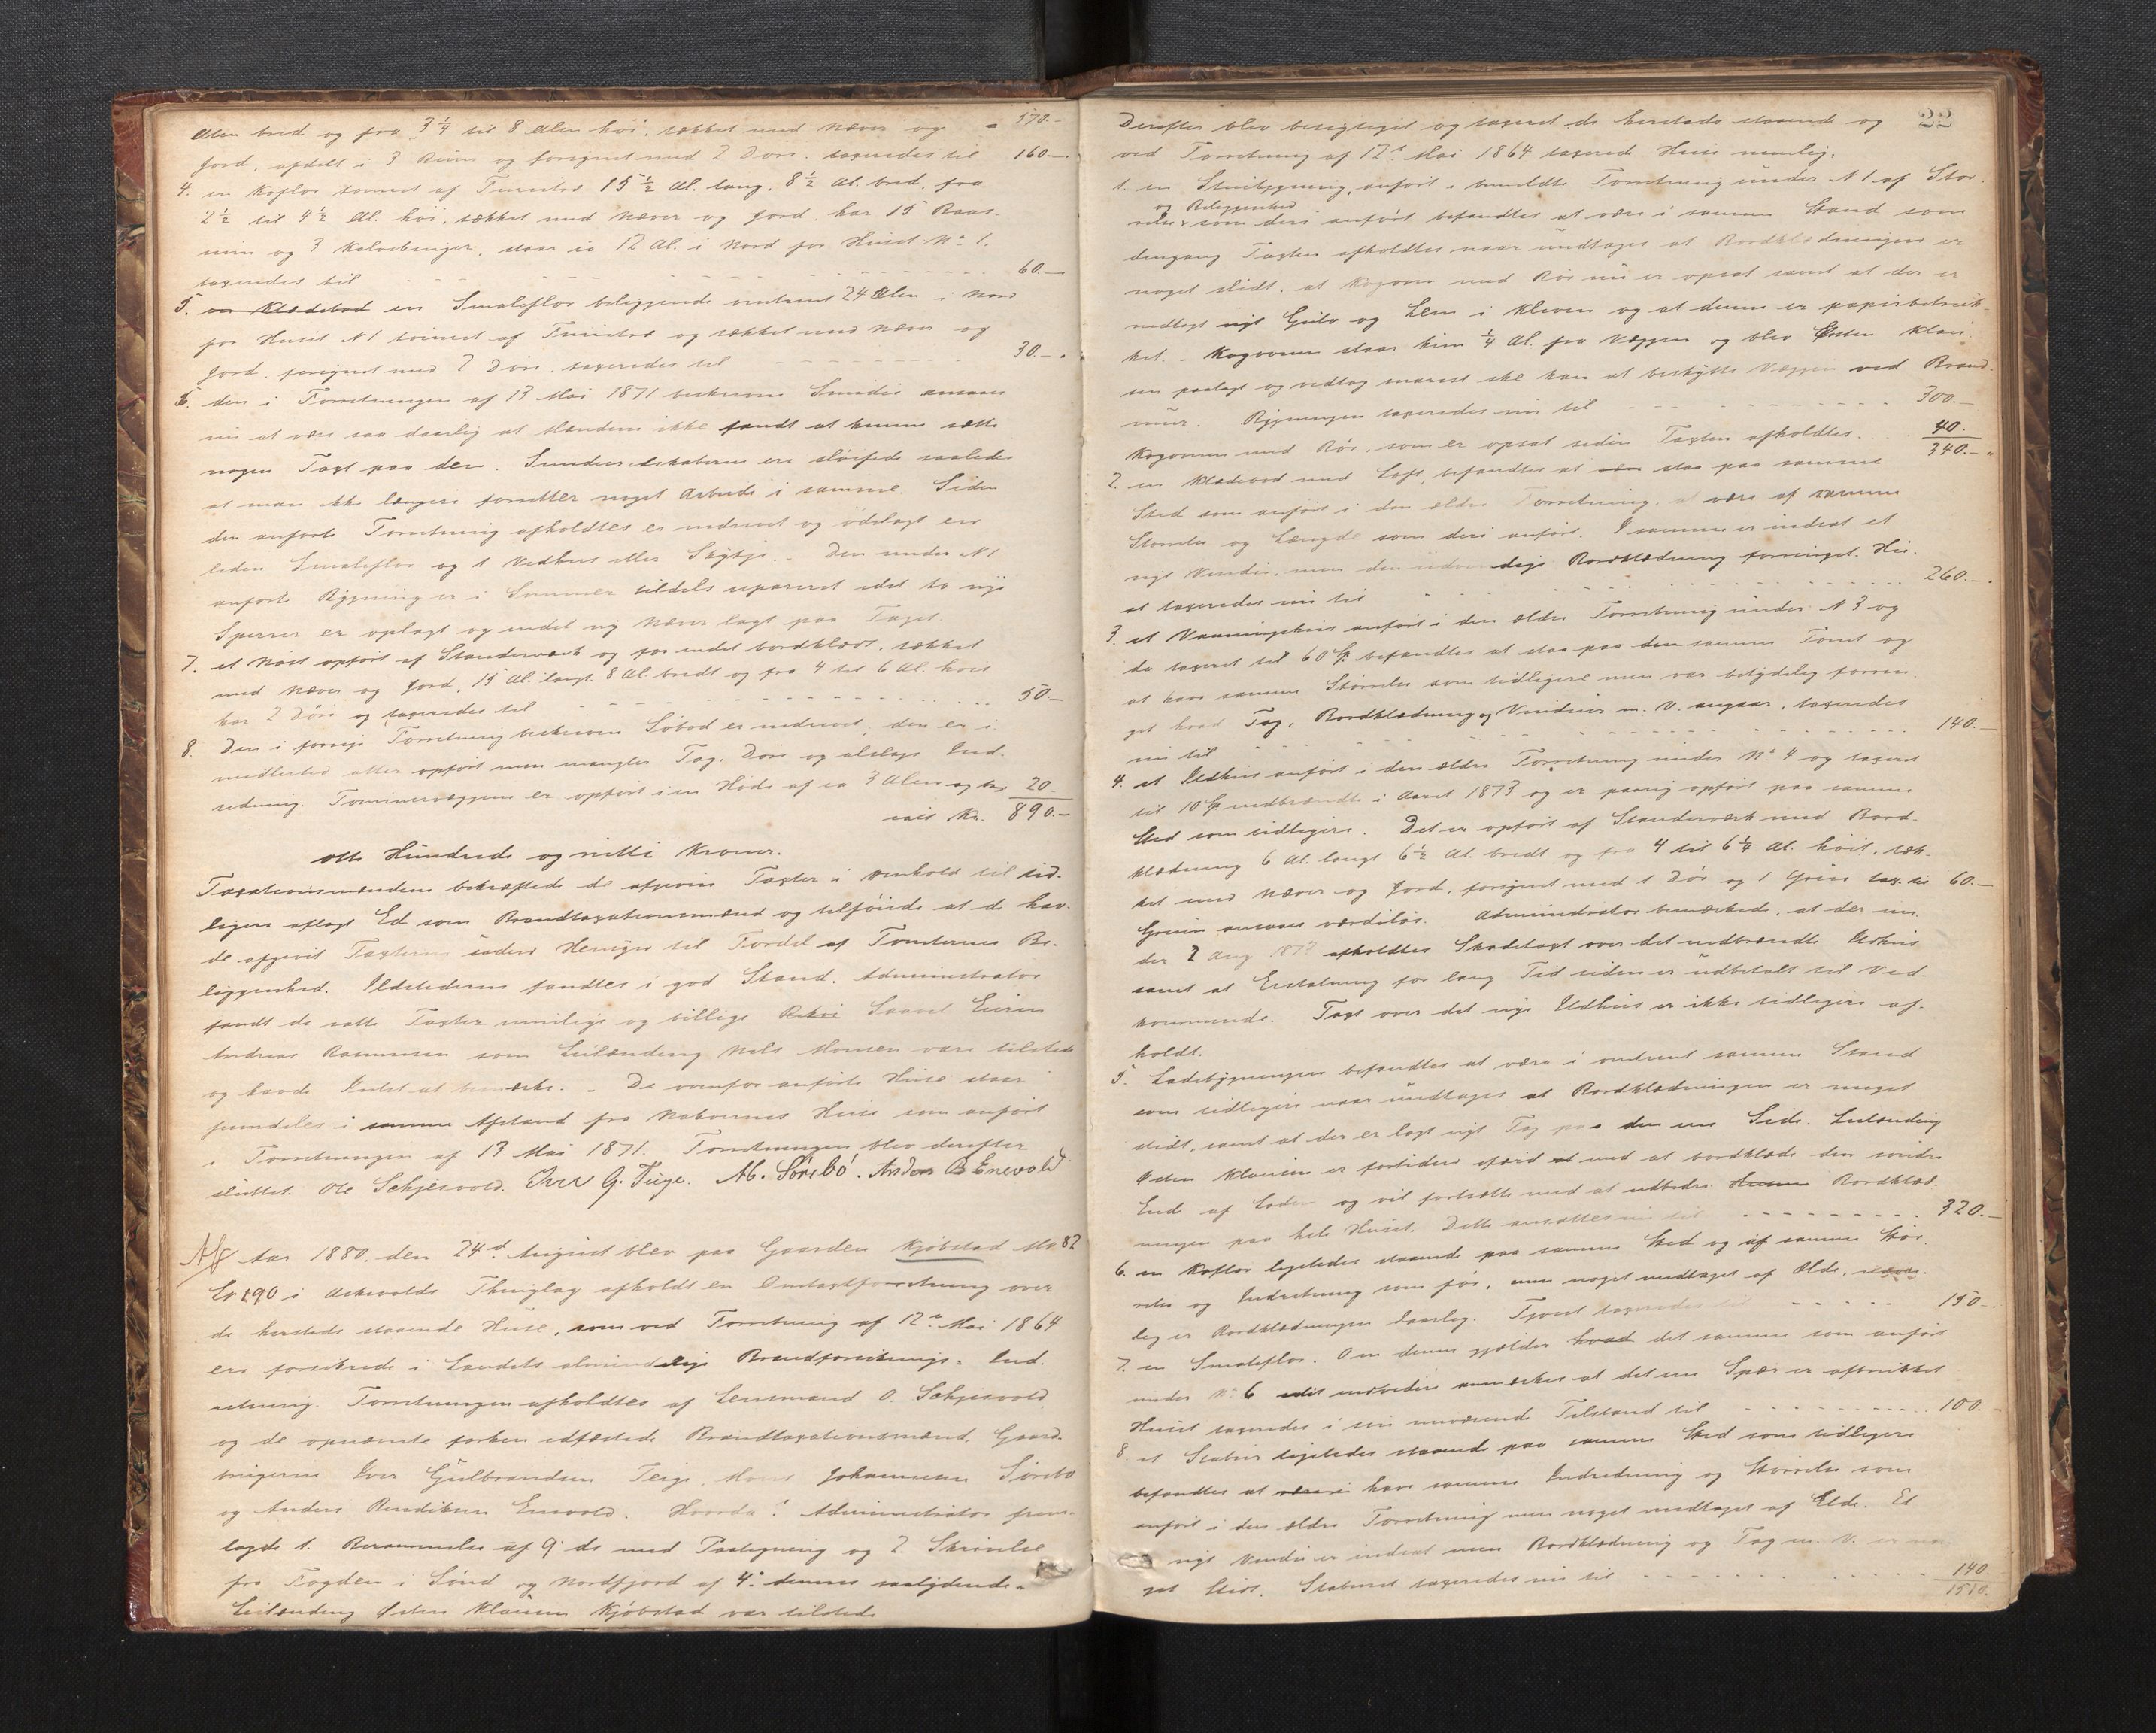 Alen bred og fra 3 1/4 til 8 Alen høi, tækket med Næver og = 570.-
Jord, afdelt i 3 Rum og forsynet med 2 Døre. taxeredes til 160.-
4. en Koflor tømret af Furutræ 15 1/2 Al. lang, 8 1/2 Al. bred, fra
2 1/2 til 4 1/2 Al. høi, tækket med Næver og Jord, har 15 Baas-
rum og 3 Kalvebinger, staar ca 12 Al. i Nord for Huset No 1.
taxeredes til 60.-
5. en Klædebod en Smaleflor beliggende omtrent 24 Alen i Nord
for Huset N 1 tømret af Furutræ og tækket med Næver og
Jord, forsynet med 2 Døre, taxeredes til 30.-
6. den i Forretningen af 13 Mai 1871 beskrevne Smidie ansaaes
nu at være saa daarlig at Mændene ikke fandt at kunne sætte
nogen Taxt paa den. Smideredskaberne ere sløifede saaledes
at man ikke længere forretter noget Arbeide i samme. Siden
den anførte Forretning afholdtes er nedrevet og ødelagt en
liden Smaleflor og 1 Vedhus eller Skykje. - Den under N 1
anførte Bygning er i Sommer tildels repareret idet to nye
Sperrer er oplagt og endel ny Næver lagt paa Taget.
7. et Nøst opført af Standerværk og for endel bordklædt, tækket
med Næver og Jord, 15 Al. langt 8 Al. bredt og fra 4 til 6 Al. høit
har 2 Døre og taxeredes til 50.-
8. Den i forrige Forretning beskrevne Søbod er nedrevet, den er i-
midlertid atter opført men mangler Tag, Døre og alslags Ind-
redning. Tømmervæggene er opført i en Høide af ca 3 Alen og tax. 20.-
ialt Kr. 890.-
otte Hundrede og nitti Kroner.
Taxationsmændene bekræftede de afgivne Taxter i Henhold til tid-
ligere aflagt Ed som Brandtaxationsmænd og tilføiede at de hav-
de afgivet Taxterne uden Hensyn til Fordel af Tomternes Be-
liggenhed. Ildstederne fandtes i god Stand. Administrator
fandt de satte Taxter rimelige og billige. Saavel Eieren
Andreas Rasmussen som Leilænding Nils Monsen vare tilstede
og havde Intet at bemærke. - De ovenfor anførte Huse staar
fremdeles i samme Afstand fra Naboernes Huse som anført
i Forretningen af 13 Mai 1871. Forretningen blev derefter
sluttet. Ole Schjesvold. Iver G. Teige. M. Sörebö. Anders B Enevold
Aar 1880 den 24d August blev paa Gaarden Kjöbstad M.No 82
Lo 190 i Askvolds Thinglag afholdt en Omtaxtforretning over
de hersteds staaende Huse, som ved Forretning af 12e Mai 1864
ere forsikrede i Landets almindelige Brandforsikrings-Ind-
retning. Forretningen afholdtes af Lensmand O. Schjesvold
og de opnævnte forhen edfæstede Brandtaxationsmænd, Gaard-
brugerne Iver Gulbrandsen Teige, Mons Johannessen Sørebø
og Anders Bendiksen Enevold. Hvorda! Administrator frem-
lagde 1. Berammelse af 9 ds med Paategning og 2. Skrivelse
fra Fogden i Sønd og Nordfjord af 4de dennes saalydende.
Leilænding Østen Klausen Kjøbstad var tilstede
22
Derefter blev besigtiget og taxeret de hersteds staaende og
ved Forretning af 12e Mai 1864 taxerede Huse nemlig.
1. en Stuebygning, anført i bemeldte Forretning under N 1 af Stør-
og Beliggenhed
relse som deri anført befandtes at være i samme Stand som
dengang Taxten afholdtes naar undtages at Bordklædningen er
noget slidt, at Kogeovn med Rør nu er opsat samt at der er
nedlagt nyt Gulv og Lem i Kleven og at denne er papirbetræk-
ket. - Kogeovnen staar kun 1/4 Al. fra Væggen og blev Østen Klau-
sen paalagt og vedtog snarest ske kan at beskytte Væggen ved Brand-
mur. Bygningen taxeredes nu til 300.-
Kogeovnen med Rør, som er opsat siden Taxten afholdtes. 40.
340.-
2. en Klædebod med Loft, befandtes at staa paa samme
Sted som anført i den ældre Forretning, at være af samme
Størrelse og Længde som deri anført. I samme er indsat et
nyt Vindu, men den udvendige Bordklædning forringet. Hu-
set taxeredes nu til 260.-
3. et Vaaningshus anført i den ældre Forretning under N 3 og
da taxeret til 60 Sp. befandtes at staa paa den samme Tomt og
at have samme Størrelse som tidligere men var betydelig forrin-
get hvad Tag, Bordklædning og Vinduer m. V. angaar, taxeredes
nu til 140.-
4. et Ildhus anført i den ældre Forretning under No 4 og taxeret
til 10 Sp. nedbrændte i Aaret 1873 og er paany opført paa samme
Sted som tidligere. Det er opført af Standerværk med Bord-
klædning 6 Al. langt 6 1/2 Al. bredt og fra 4 til 6 1/4 Al. høit, tæk-
ket med Næver og Jord, forsynet med 1 Dør og 1 Grue tax. til 60.-
Gruen ansaaes værdiløs. Administrator bemærkede, at der un-
der 2 Aug 1873 afholdtes Skadetaxt over det nedbrændte Ildhus
samt at Erstatning for lang Tid siden er udbetalt til Ved-
kommende. Taxt over det nye Ildhus er ikke tidligere af-
holdt.
5. Ladebygningen befandtes at være i omtrent samme Stand
som tidligere naar undtages at Bordklædningen er meget
slidt, samt at der er lagt nyt Tag paa den ene Side. Leilænding
Østen Klausen er fortiden ifærd med at bordklæde den søndre
Ende af Laden og vil fortsætte med at udbedre Bordklæd-
ningen paa hele Huset. Dette ansættes nu til 320.-
6. en Koflor ligeledes staaende paa samme Sted og af samme Stør-
relse og Indretning som før, men noget medtaget af Ælde,
lig er Bordklædningen daarlig. Fjøset taxeredes til 150.-
7. en Smaleflor. Om denne gjælder hvad det samme som anført
under No 6 idet endvidere anmærkes at det ene Spær er afbrukket
Huset taxeredes i sin nuværende Tilstand til 100.-
8. et Stabur ligeledes staaende paa samme Sted som tidligere
befandtes at have samme Indredning og Størrelse som
anført i den ældre Forretning men noget medtaget af Elde. Et
nyt Vindu er indsat men Bordklædning og Tag m. V. er no-
get slidt. Staburet taxeredes nu til 140.
1510.